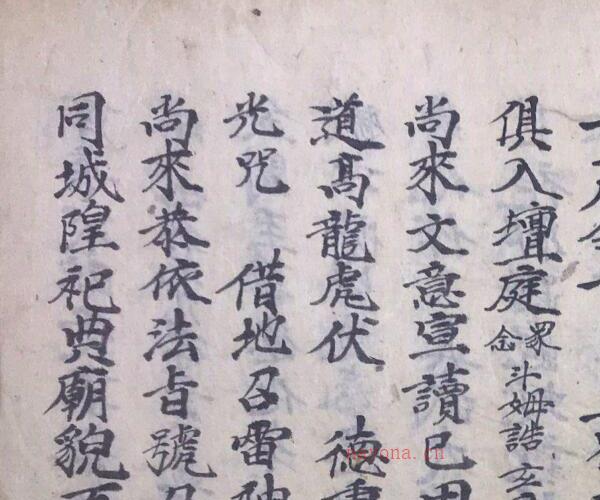 俱入壇庭 眾念斗姆誥玄
尚來文意宣讀已
道髙龍虎伏 德
光咒 借地召雷
尚來恭依法旨號召
同城隍祀典廟貌
nayona.cn